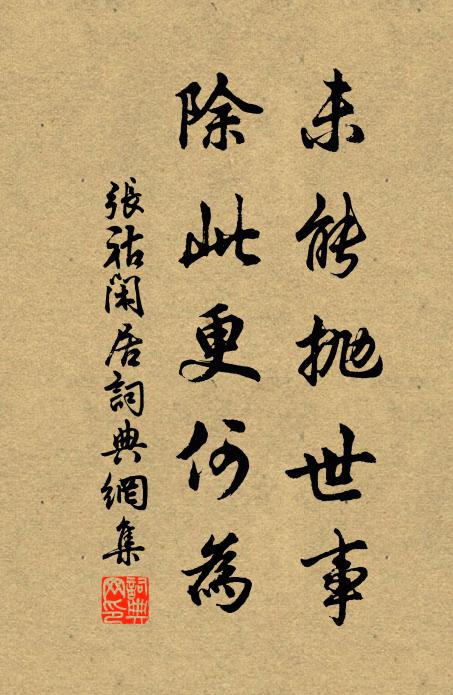 未能抛世事
除此更何為
張祜閑居詞典網集
詞典网印